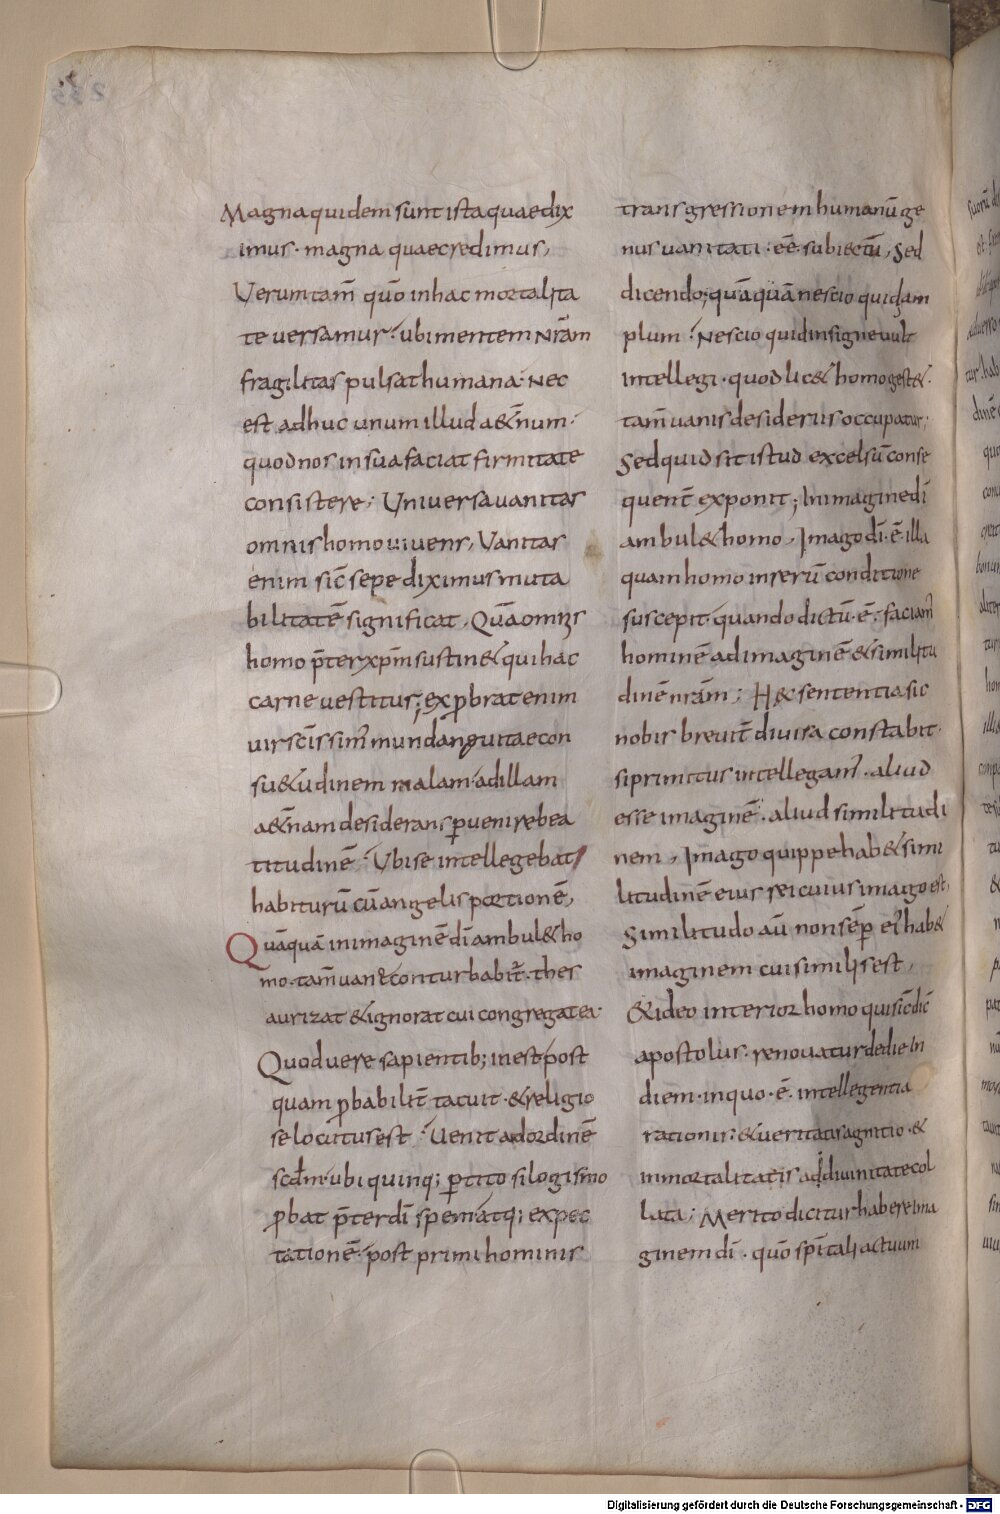 Magna quidem sunt ista quae dix
imus· magna quae credimus,
Verumtam̄ quō in hac mortalita
te versamur· ubi mentem nr̄am
fragilitas pulsat humana· nec
est adhuc unum illud a&̄num·
quod nos in sua faciat firmitate
consistere; Universa vanitas
omnis homo vivens, Vanitas
enim sic̄ sepe diximus muta
bilitatē significat, Quā omnis
homo p̄ter xp̄m sustin& qui hac
carne vestitur; exprobrat enim
vir sc̄issim̄ mundanę vitae con
su&udinem malam· ad illam
a&̄nam desiderans ꝑvenire bea
titudinē· Ubi se intellegebat
habiturū cū angelis portionē,
Quāquā in imaginē dī ambul& ho
mo· tam̄ vane conturbabit̄· thes
aurizat & ignorat cui congregat ea·
Quod vere sapientib; inest· post
quam ꝓbabilit̄ tacuit· & religio
se locutus est· Venit ad ordinē
scd̄m· ubi quinq; ꝑtito silogismo
ꝓbat p̄ter dī spem atq; expec
tationē· post primi hominis
transgressionem humanū ge
nus vanitati· eē subiectū, Sed
dicendo; quāquā nescio quiddam
plum· Nescio quid insigne vult
intellegi· quod lic& homo gest&·
tam̄ vanis desideriis occupatur;
Sed quid sit istud excelsū conse
quent̄ exponit; In imagine dī
ambul& homo, Imago dī· ē· illa
quam homo in rerū conditione
suscepit· quando dictū· ē· faciam̄
hominē ad imaginē & similitu
dinē nr̄am; Hęc sententia sic
nobis brevit̄ divisa constabit·
si primitus intellegam̄· aliud
esse imaginē· aliud similitudi
nem, Imago quippe hab& simi
litudinē eius rei cuius imago est,
Similitudo aū non sēꝑ ei hab&
imaginem cui similis est,
& ideo interior homo qui sic̄ dic̄
apostolus· renovatur de die in
diem· in quo· ē· intellegentia
rationis· & veritatis agnitio· &
inmortalitatis ad divinitate col
lata; Merito dicitur habere ima
ginem dī· quō sp̄itali actuum